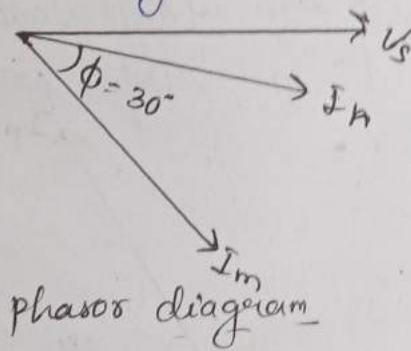 Vs
IA
ϕ = 30°
Im
phasor diagram